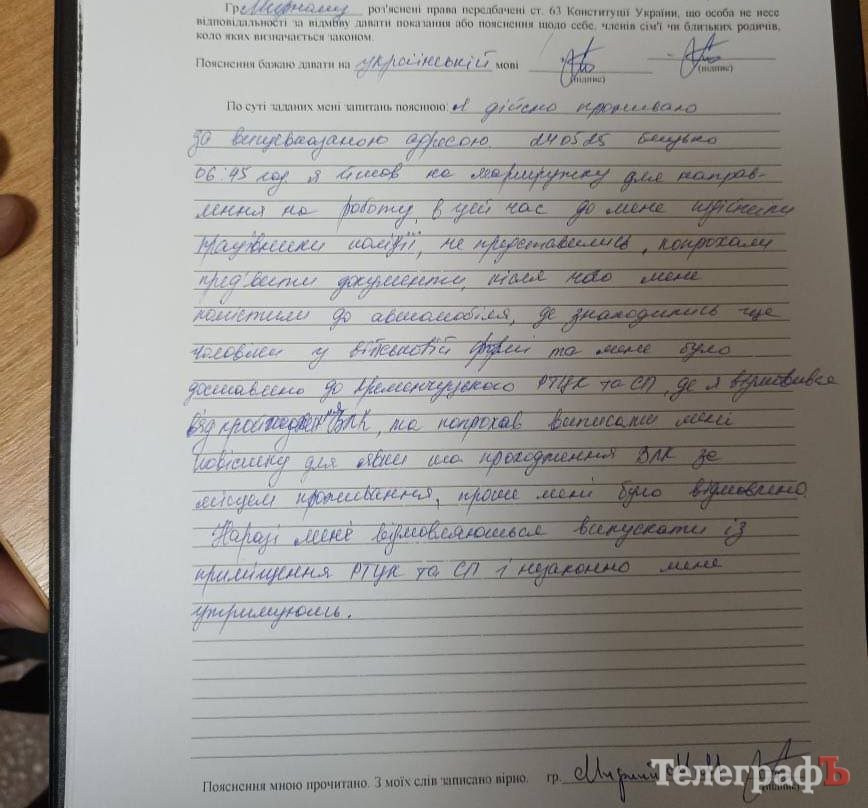 Гр. Мирному роз'яснені права передбачені ст. 63 Конституції України, що особа не несе
відповідальності за відмову давати показання або пояснення щодо себе, членів сім'ї чи близьких родичів,
коло яких визначається законом.
Пояснення бажаю давати на українській мові
(підпис) (підпис)
По суті заданих мені запитань пояснюю: Я дійсно проживаю
за вищевказаною адресою. 240525 близько
06:45 год я йшов на маршрутку для направ-
лення на роботу, в цей час до мене підійшли
працівники поліції, не представились, попрохали
пред'явити документи, після чого мене
помістили до автомобіля, де знаходились ще
чоловіки у військовій формі та мене було
доставлено до Кременчуцького РТЦК та СП, де я відмовився
від проходження ВЛК, та попрохав виписати мені
повістку для явки та проходження ВЛК за
місцем проживання, проте мені було відмовлено.
Наразі мене відмовляються випускати із
приміщення РТЦК та СП і незаконно мене
утримують.
Пояснення мною прочитано. З моїх слів записано вірно. гр. Мирний
(підпис)
ТелеграфЪ